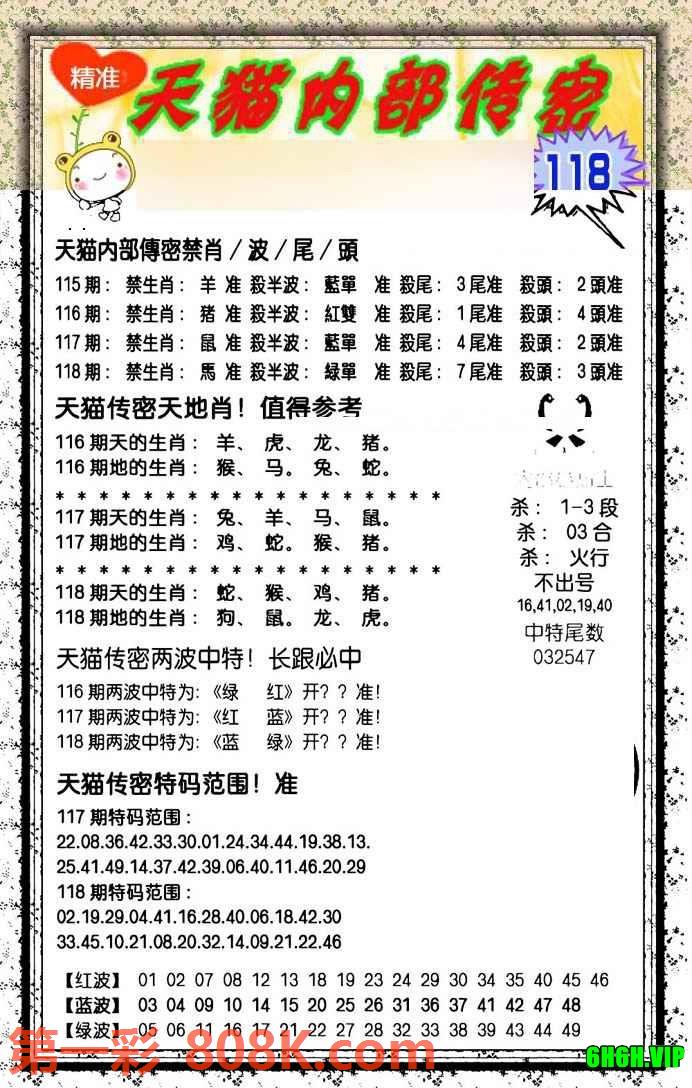 精准
天猫内部传密
118
天猫内部傳密禁肖/波/尾/頭
115期: 禁生肖: 羊 准 殺半波: 藍單 准 殺尾: 3尾准 殺頭: 2頭准
116期: 禁生肖: 猪 准 殺半波: 紅雙 准 殺尾: 1尾准 殺頭: 4頭准
117期: 禁生肖: 鼠 准 殺半波: 藍單 准 殺尾: 4尾准 殺頭: 2頭准
118期: 禁生肖: 馬 准 殺半波: 緑單 准 殺尾: 7尾准 殺頭: 3頭准
天猫传密天地肖! 值得参考
116期天的生肖: 羊、 虎、 龙、 猪。
116期地的生肖: 猴、 马。 兔、 蛇。
* * * * * * * * * * * * * * * * * *
117期天的生肖: 兔、 羊、 马、 鼠。
117期地的生肖: 鸡、 蛇。 猴、 猪。
* * * * * * * * * * * * * * * * * *
118期天的生肖: 蛇、 猴、 鸡、 猪。
118期地的生肖: 狗、 鼠。 龙、 虎。
杀: 1-3段
杀: 03合
杀: 火行
不出号
16,41,02,19,40
中特尾数
032547
天猫传密两波中特! 长跟必中
116期两波中特为:《绿 红》开? ? 准!
117期两波中特为:《红 蓝》开? ? 准!
118期两波中特为:《蓝 绿》开? ? 准!
天猫传密特码范围! 准
117期特码范围:
22.08.36.42.33.30.01.24.34.44.19.38.13.
25.41.49.14.37.42.39.06.40.11.46.20.29
118期特码范围:
02.19.29.04.41.16.28.40.06.18.42.30
33.45.10.21.08.20.32.14.09.21.22.46
【红波】 01 02 07 08 12 13 18 19 23 24 29 30 34 35 40 45 46
【蓝波】 03 04 09 10 14 15 20 25 26 31 36 37 41 42 47 48
【绿波】 05 06 11 16 17 21 22 27 28 32 33 38 39 43 44 49
第一彩 808K.com
6H6H.VIP